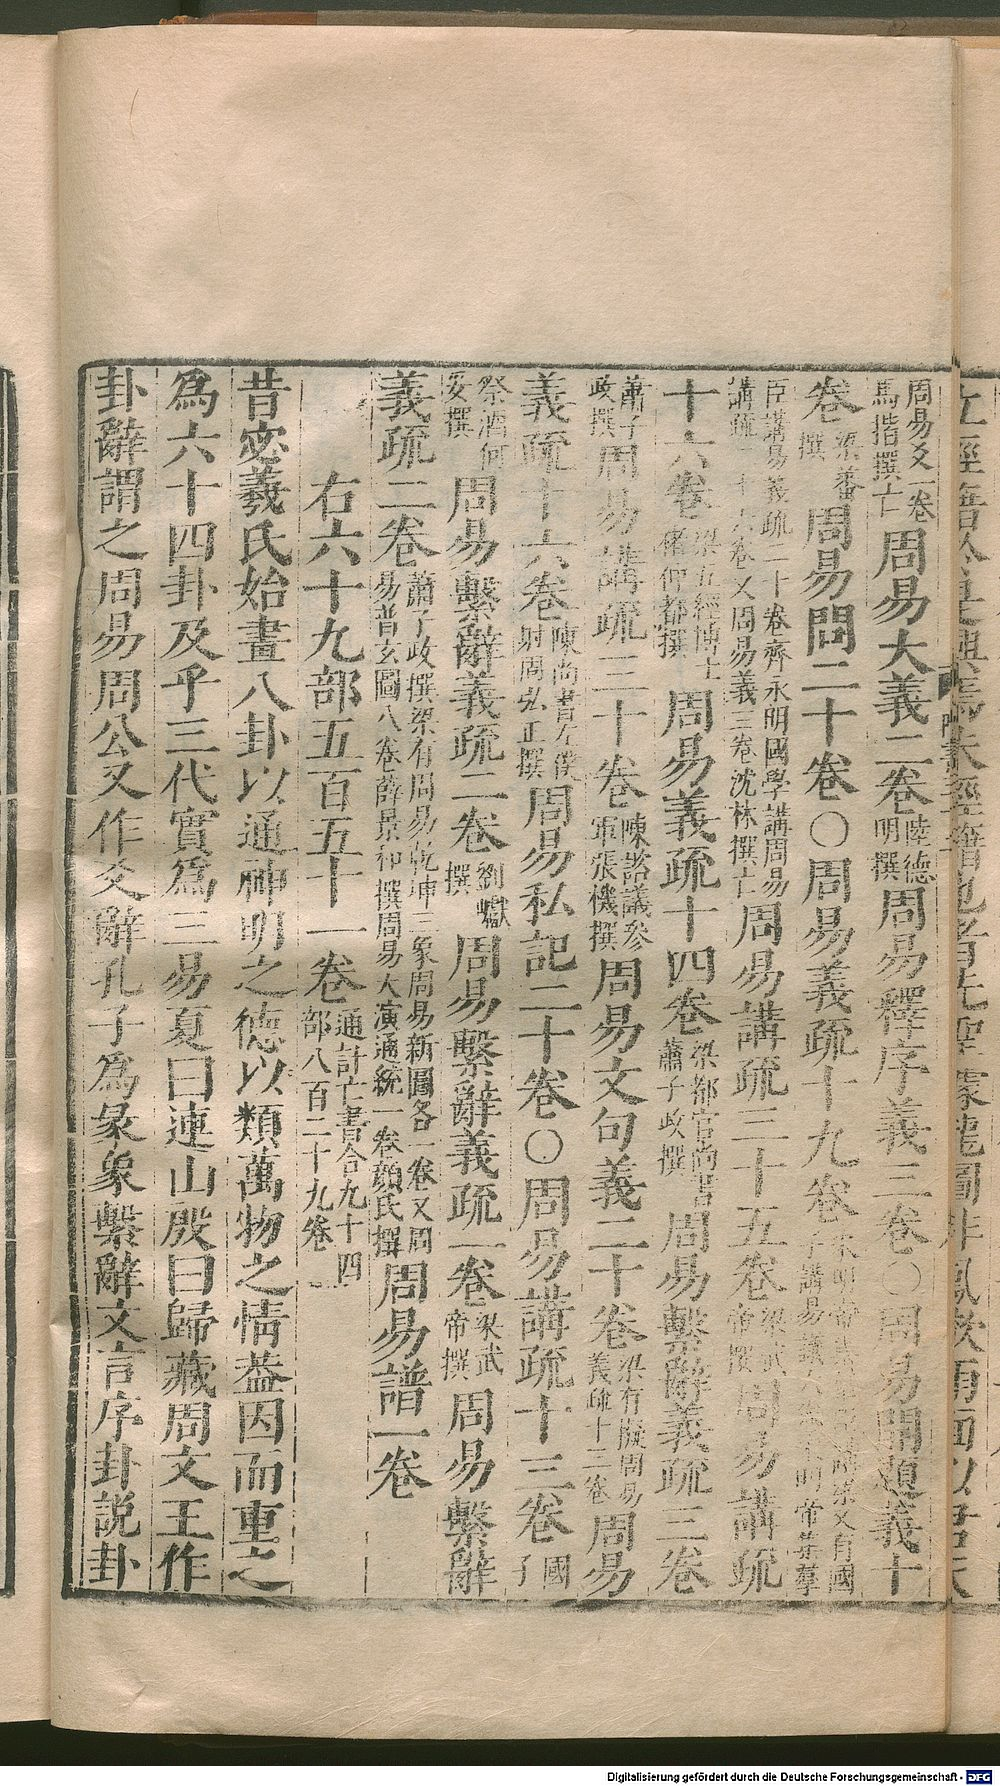 周易爻一卷
馬揩撰亡
周易大義二卷
陸德
明撰
周易釋序義三卷〇周易開題義十
卷
梁蕃
撰
周易問二十卷〇周易義疏十九卷
又有國
講易議
帝集羣
臣講易義疏二十卷齊永明國學講周易
講疏二十六卷又周易義三卷沈林撰亡
周易講疏三十五卷
梁武
帝撰
周易講疏
十六卷
梁五經博士
褚仲都撰
周易義疏十四卷
梁都官尚書
蕭子政撰
周易繫辭義疏三卷
蕭子
政撰
周易講疏三十卷
陳諮議參
軍張機撰
周易文句義二十卷
梁有擬周易
義疏十三卷
周易
義疏十六卷
陳尚書左僕
射周弘正撰
周易私記二十卷〇周易講疏十三卷
國
子
祭酒何
妥撰
周易繫辭義疏二卷
劉瓛
撰
周易繫辭義疏一卷
梁武
帝撰
周易繫辭
義疏二卷
蕭子政撰梁有周易乾坤三象周易新圖各一卷又周
易普玄圖八卷薛景和撰周易大演通統一卷顔氏撰
周易譜一卷
右六十九部五百五十一卷
通計亡書合九十四
部八百二十九卷
昔宓羲氏始畫八卦以通神明之德以類萬物之情蓋因而重之
爲六十四卦及乎三代實爲三易夏曰連山殷曰歸藏周文王作
卦辭謂之周易周公又作爻辭孔子爲彖象繫辭文言序卦説卦
Digitalisierung gefördert durch die Deutsche Forschungsgemeinschaft - DFG